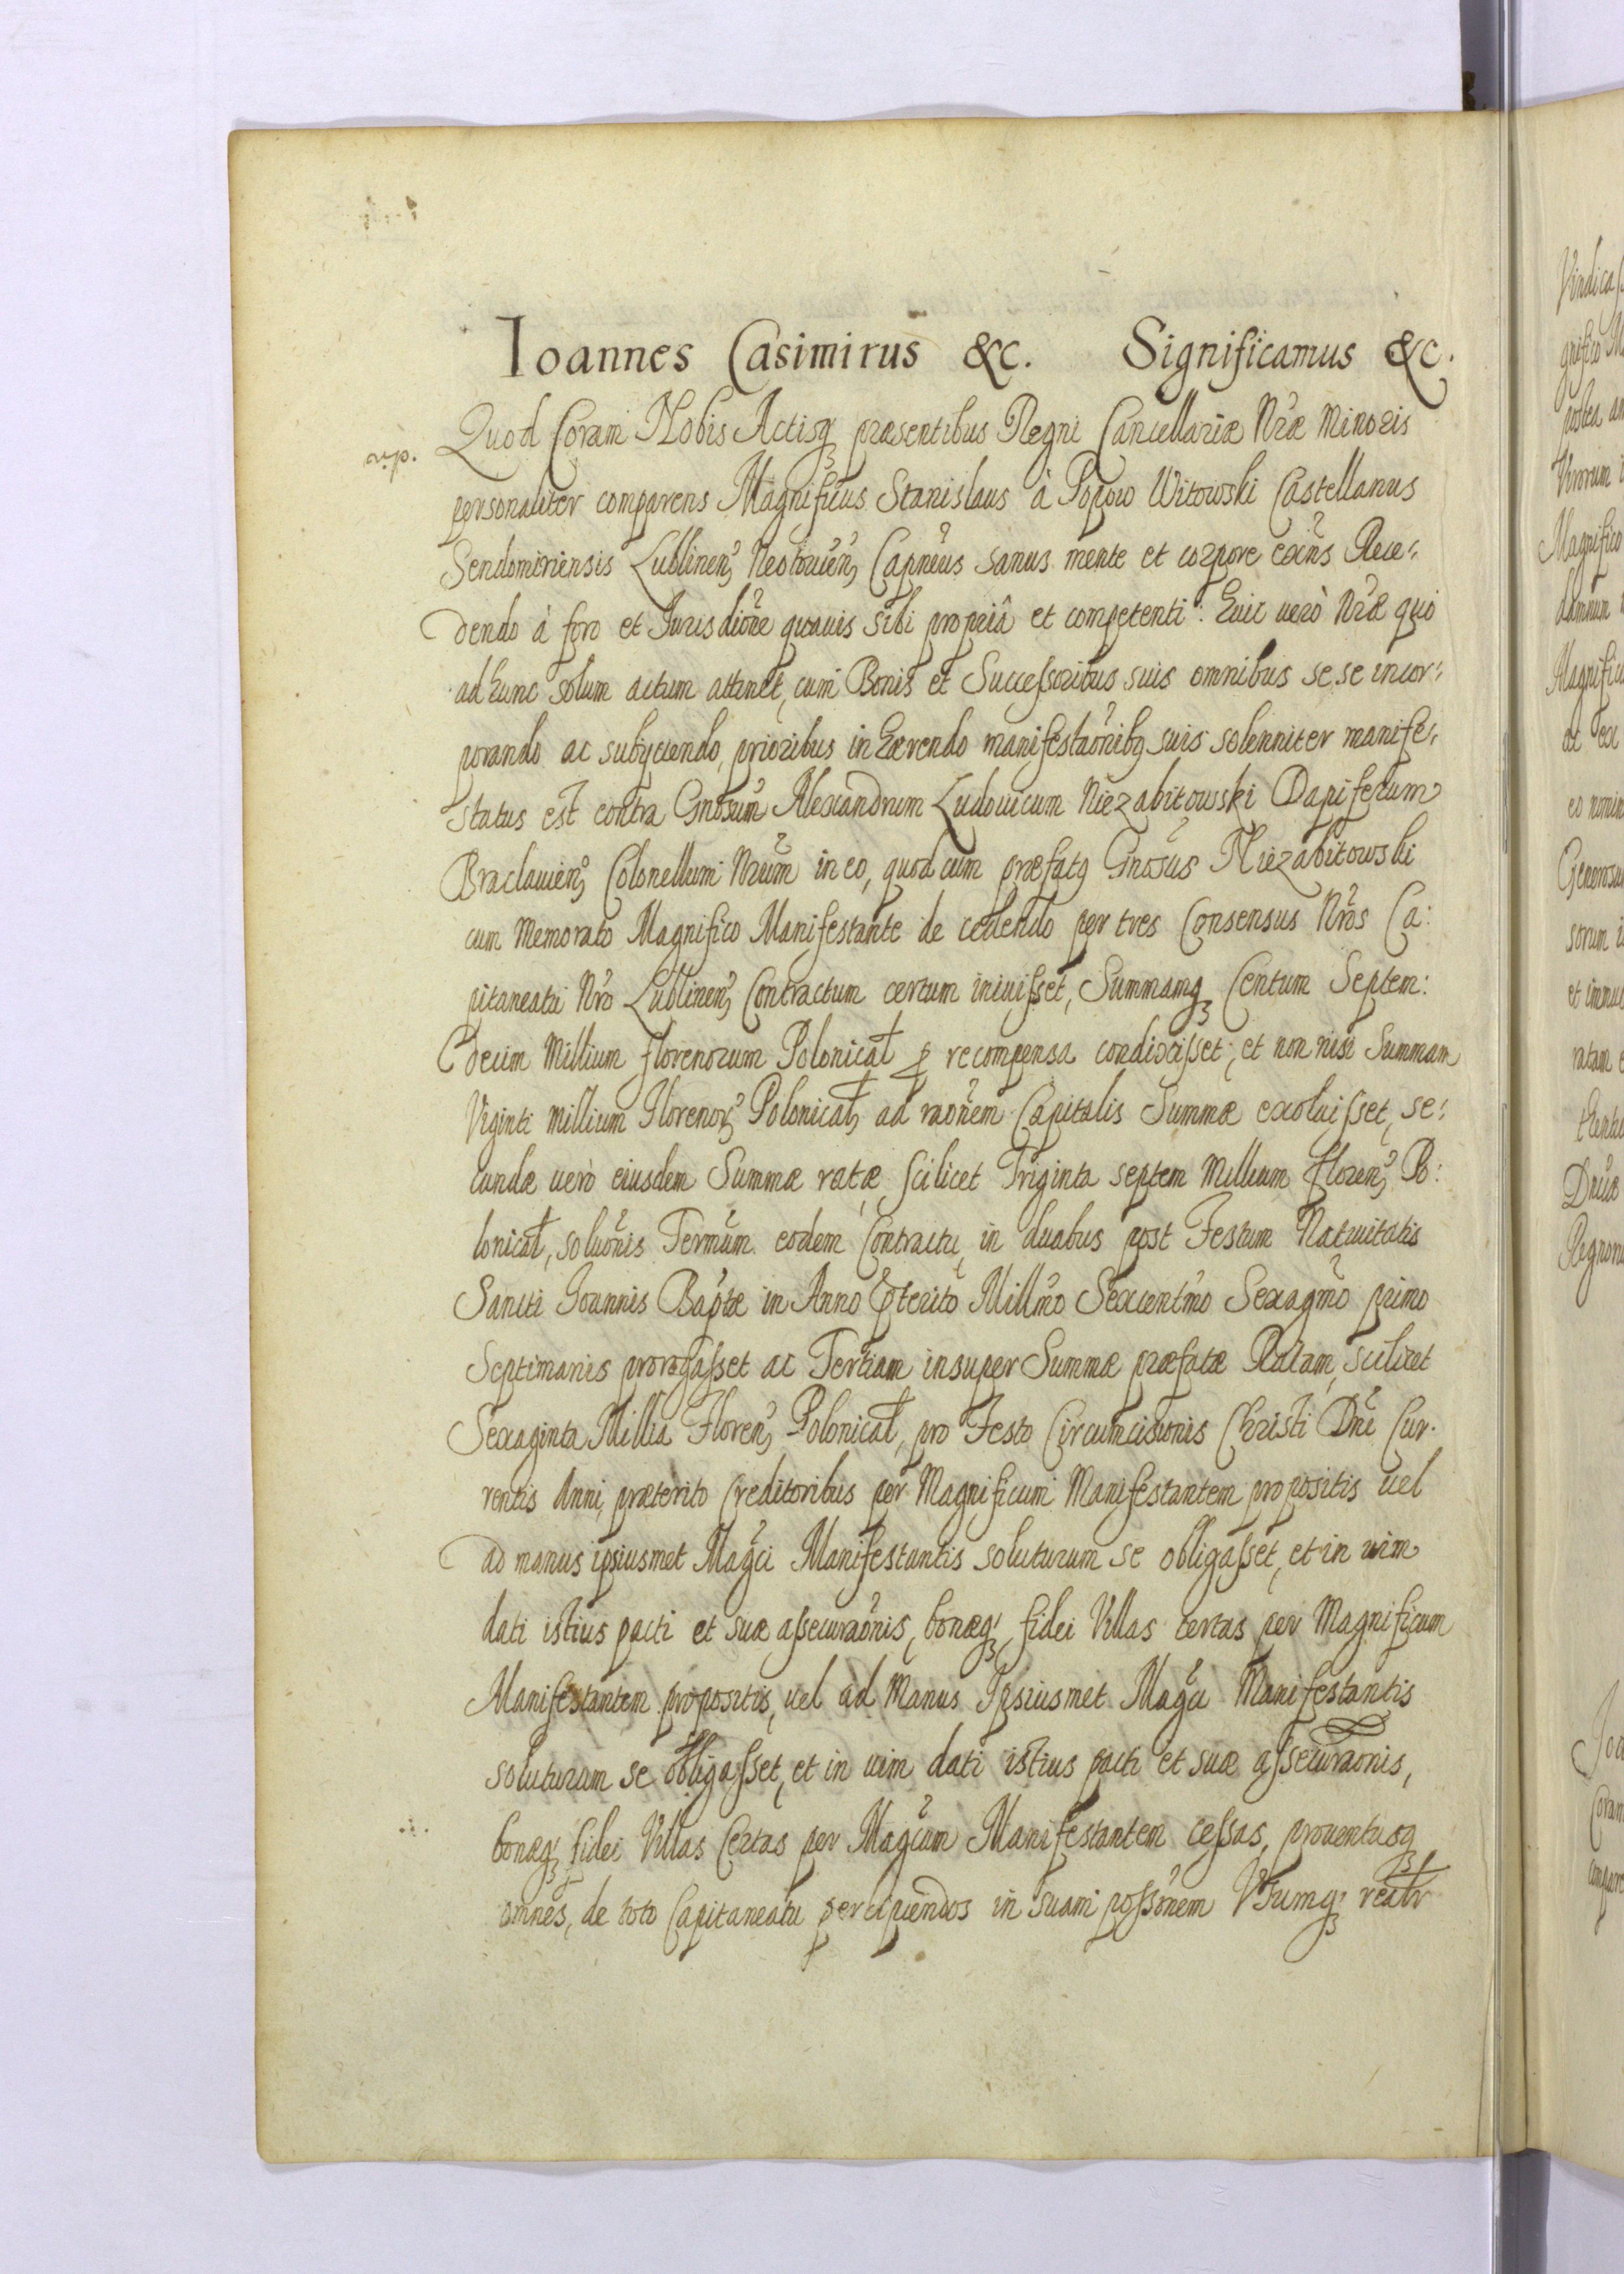 Ioannes Casimirus &c. Significamus &c.
Quod Coram Nobis Actisq; præsentibus Regni Cancellariæ Nræ Minoris
personaliter comparens Magnificus Stanislaus à Popow Witowski Castellanus
Sendomiriensis Lublinen, Capneus sanus mente et corpore exñs Rece-
dendo à foro et Jurisdione quavis sibi propriâ et competenti: Huic uerò Nræ quo
ad hunc solum actum attinet, cum Bonis et Successoribus suis omnibus se se incor-
porando ac subyciendo, prioribus inhærendo manifestaonibq suis solenniter manife-
status est contra Gnosum Alexandrum Ludouicum Niezabitowski Dapiferum
Braclauien, Colonellum Nrum in eo, quod cum præfatq Gnosus Niezabitowski
cum Memorato Magnifico Manifestante de cedendo per tres Consensus Nros Ca:
pitaneatu Nro Lublinen, Contractum certum iniuisset, Summamq; Centum Septem:
decim Millium florenorum Polonical pro recompensa condixisset, et non nisi Summam
Viginti millium Florenor, Polonical, ad raonem Capitalis Summæ exoluisset, se-
cundæ uerò eiusdem Summæ ratæ scilicet Triginta septem Millium floren, Po:
lonical, soluonis Termum eodem Contractu, in duabus post Festum Natiuitatis
Sancti Joannis Baptæ in Anno Pterito Millmo Sexcentmo Sexagmo primo
Septimanis prorogasset ac Tertiam insuper Summæ præfatæ Ratam, scilicet
Sexaginta Millia Floren, Polonical, pro Festo Circumcisionis Christi Dni Cur-
rentis Anni, præterito Creditoribus per Magnificum Manifestantem propositis uel
ad manus ipsiusmet Magci Manifestantis soluturum se obligasset, et in uim
dati istius pacti et suæ assecuraonis, bonæq; fidei Villas certas per Magnificum
Manifestantem propositis, uel ad Manus Ipsiusmet Magci Manifestantis
soluturum se obligasset, et in uim dati istius pacti et suæ assecuraonis,
bonæq; fidei Villas Certas per Magcum Manifestantem cessas, prouentusq;
omnes, de toto Capitaneatu percipiendos in suam possonem Vsumq;